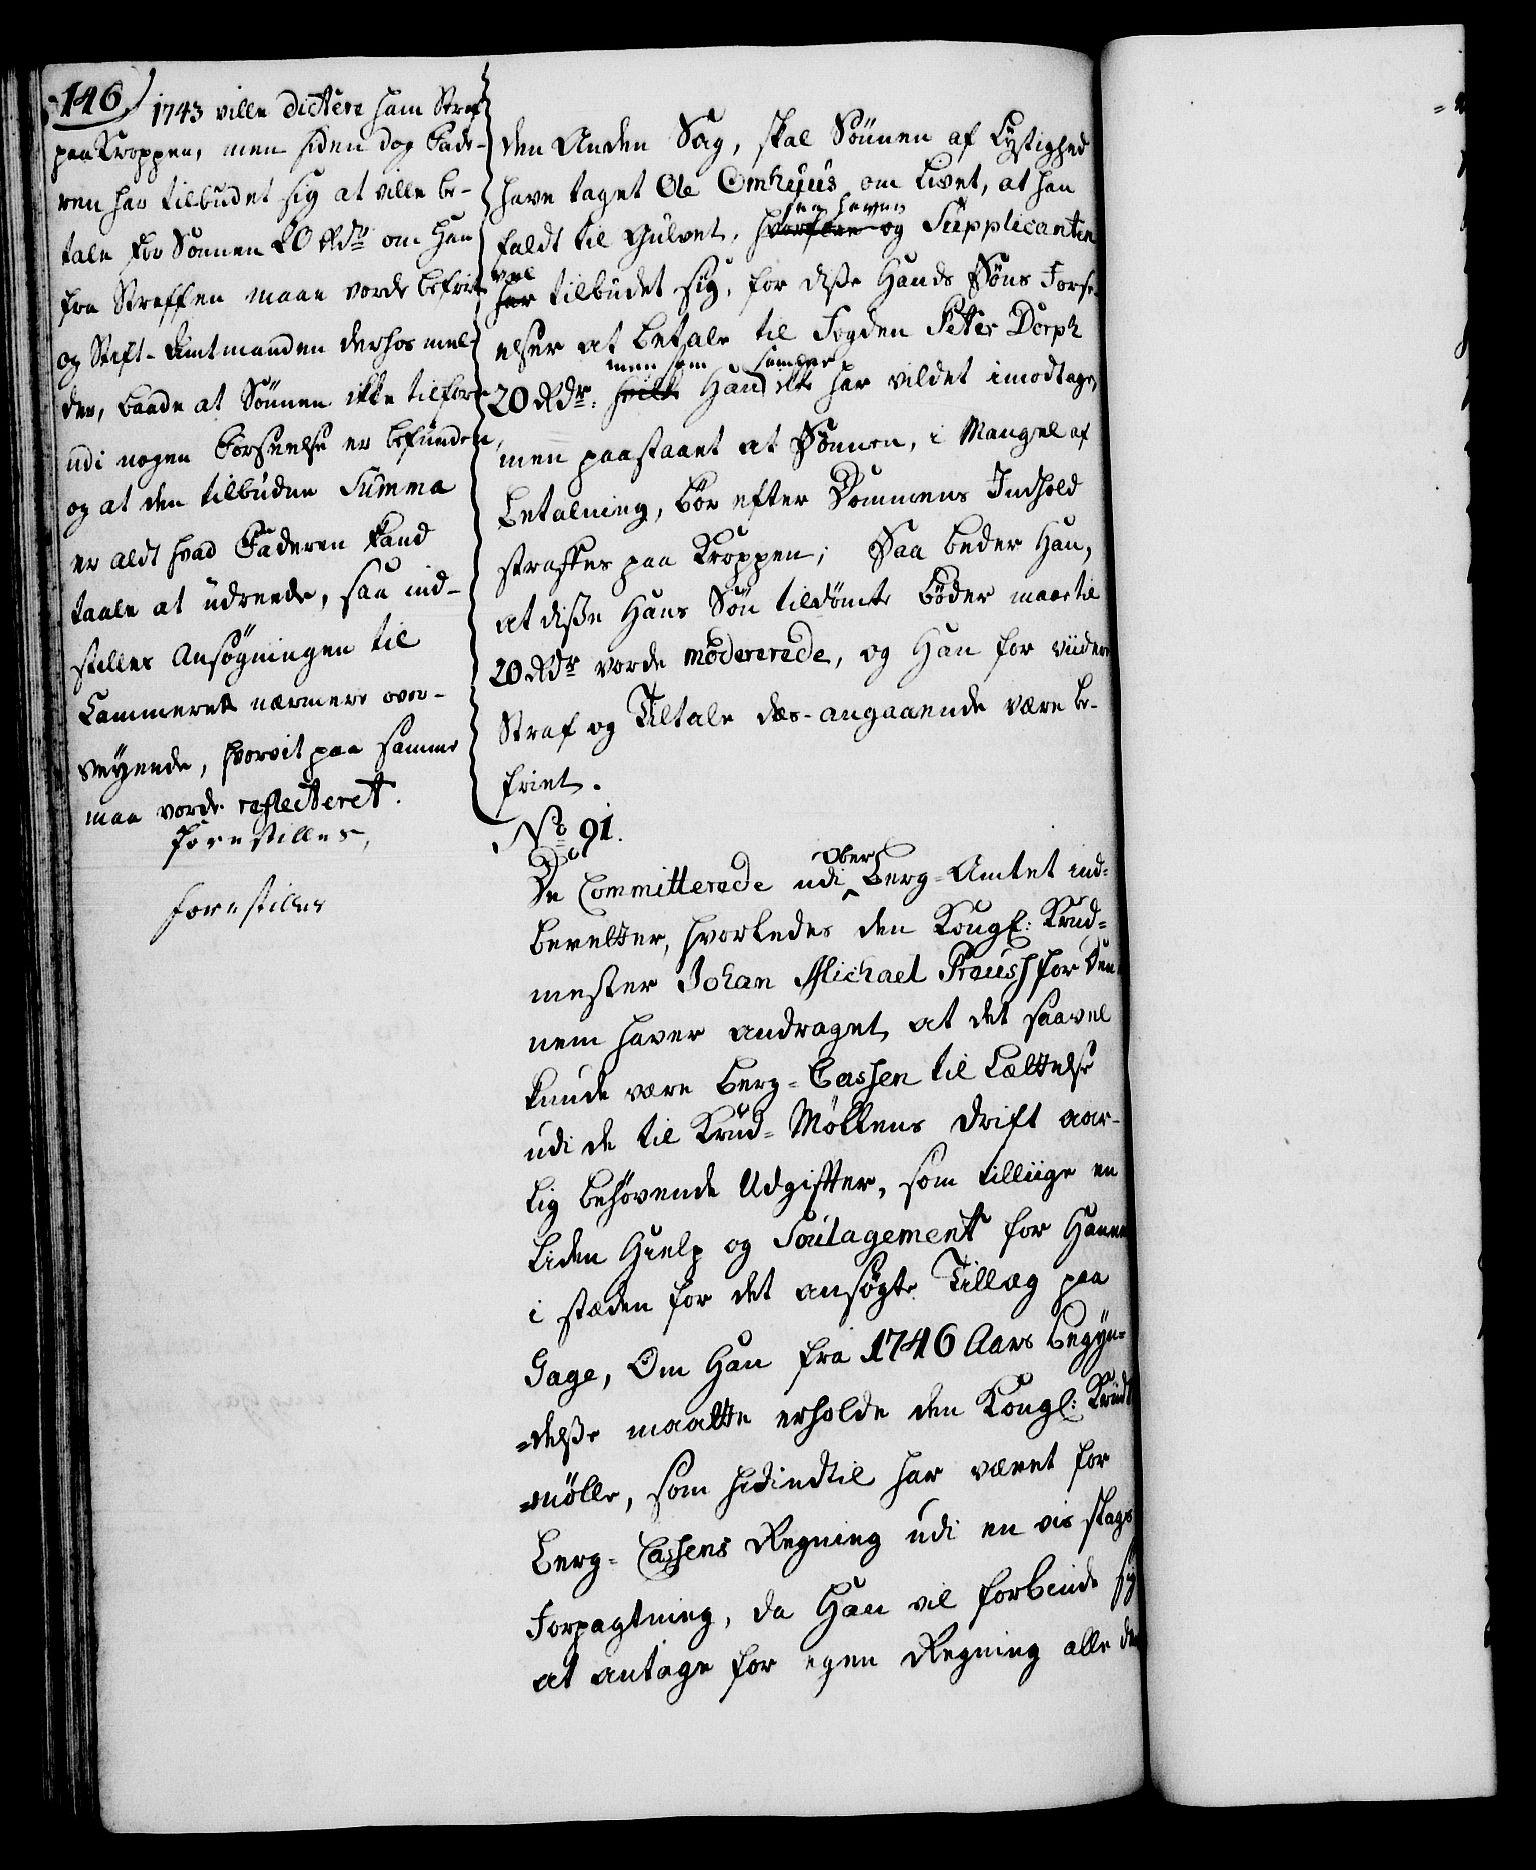 146.
1743 ville dictere ham Straf
paa Kroppen, men siden dog Fade-
ren har tilbudet sig at ville be-
tale for Sönnen 20 Rdr om han
fra Straffen maae vorde befriet
og Stift-Amtmanden derhos mel-
der, baade at Sönnen ikke tilforn
udi nogen Forseelse er befunden,
og at den tilbudne Summa
er aldt hvad Faderen kand
taale at udreede, saa ind-
stilles Ansøgningen til
Cammerets nærmere over-
veyende, hvorvit paa samme
maa vorde reflecteret.
forestilles,
forestilles
den Anden Sag, skal Sönnen af Lystighed
have taget Ole Omhuus om Livet, at han
faldt til Gulvet, og Supplicanten
vel
har tilbudet sig, for disse Hands Söns Forse-
elser at betale til Fogden Peter Dorph
men som
20 Rdr. hvilke Hand ikke har vildet imodtage,
men paastaaet at Sönnen, i Mangel af
Betalning, bör efter Dommens Indhold
straffes paa Kroppen; Saa beder Han,
at disse Hans Sön tildömte Böder maae til
20 Rdr vorde modererede, og Han for viidere
Straf og Tiltale des-angaaende være be-
friet.
No 91.
De Committerede udi Ober Berg-Amtet ind-
beretter, hvorledes den Kongl: Krud-
mester Johan Michael Preush for Den-
nem haver andraget, at det saavel
kunde være Berg-Cassen til Lættelse
udi de til Krud-Møllens Drift aar-
lig behövende Udgifter, som tilliige en
liden Hielp og Soulagement for Hannem
i stæden for det ansøgte Tillæg paa
Gage, Om Han fra 1746 Aars Begyn-
delse maatte erholde den Kongl: Krudt
-mölle, som hidindtil har været for
Berg-Cassens Regning udi en vis slags
Forpagtning, da Han vil forbinde sig
at antage for egen Regning alle de